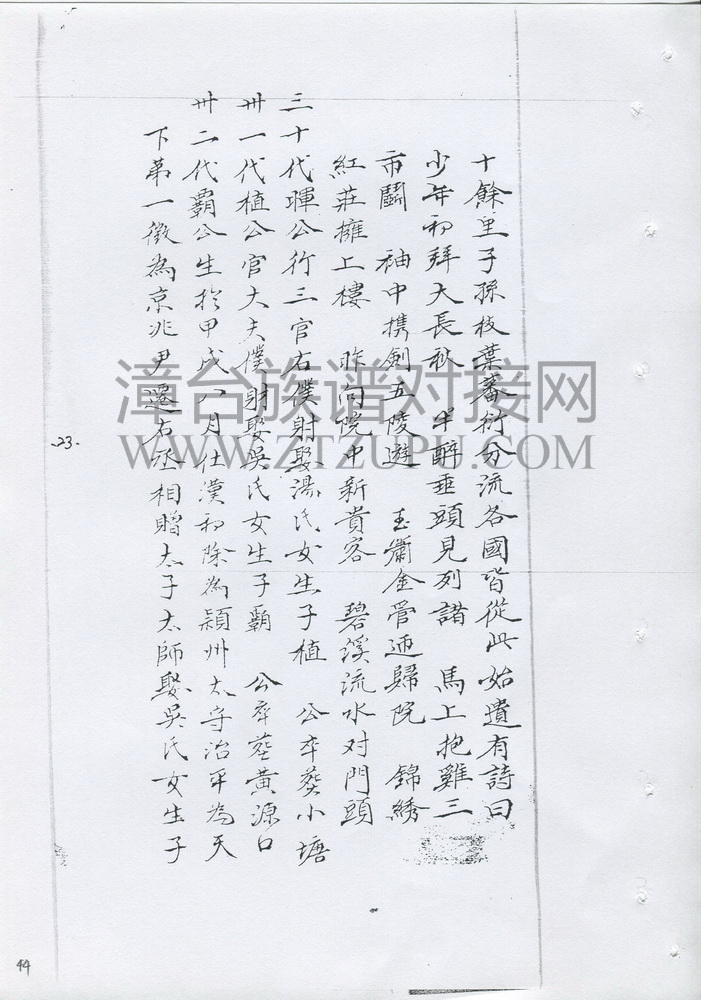 十餘里子孫枝葉蕃衍分流各國皆從此始遺有詩曰
少年初拜大長秋 半醉垂頭見列諸 馬上抱雞三
市鬪 袖中携劍五陵遊 玉簫金管迎歸院 錦綉
紅莊擁上樓 昨向院中新貴客 碧溪流水对門頭
三十代暉公行三官右僕射娶湯氏女生子植 公卒葬小塘
卅一代植公官大夫僕射娶吳氏女生子霸 公卒葬黃源口
卅二代霸公生於甲戌八月仕漢初除為穎州太守治平為天
下第一徵為京兆尹遷右丞相贈太子太師娶吳氏女生子
23.
44
漳台族谱对接网
WWW.ZTZUPU.COM